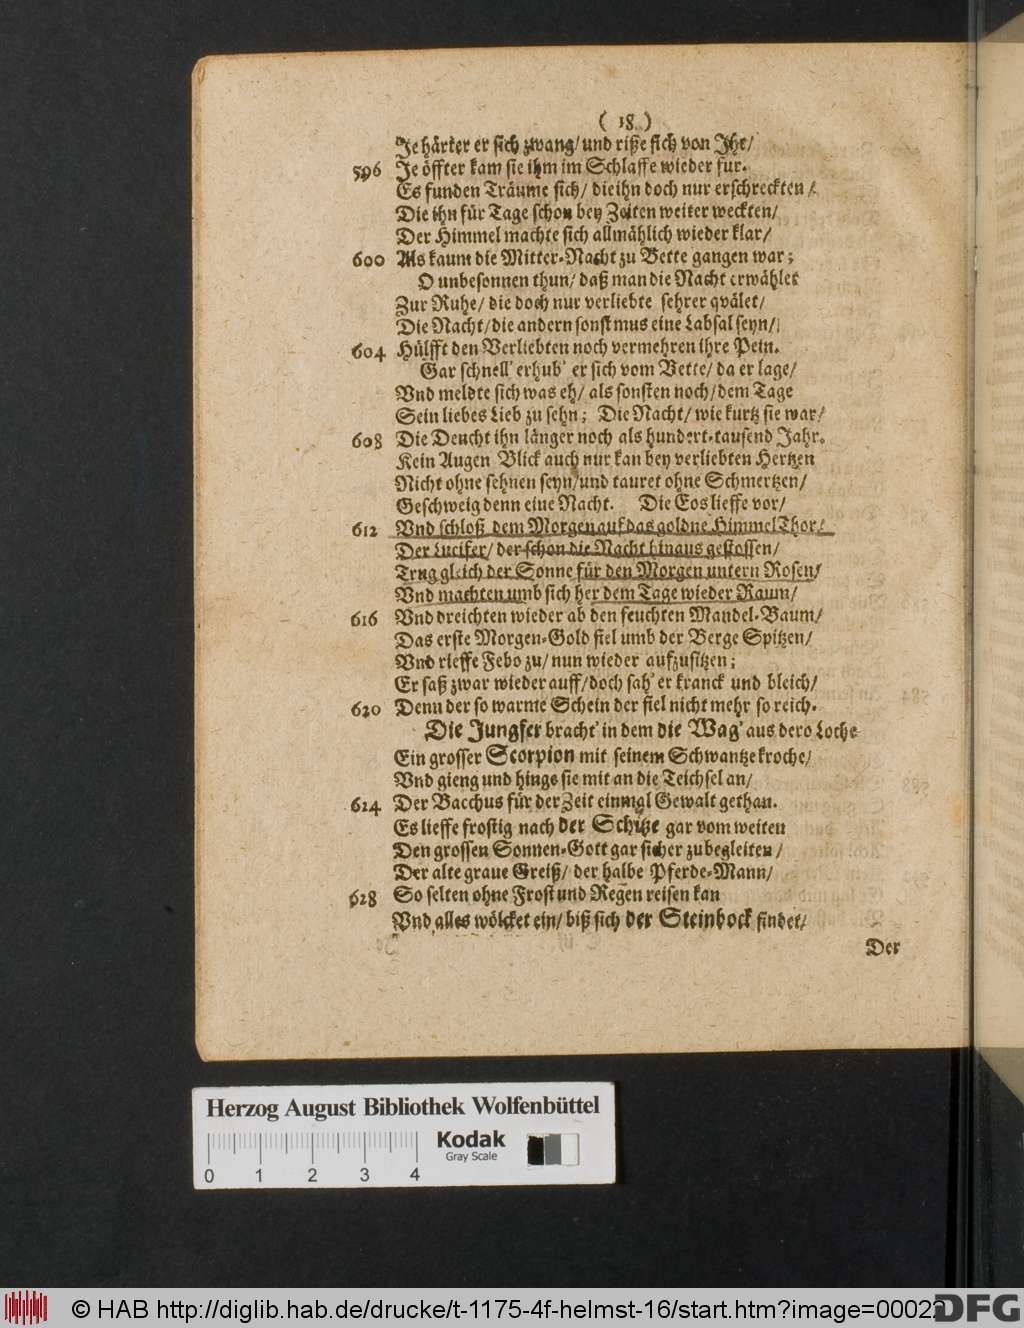 ( 18 )
Je härter er sich zwang/ und riße sich von Ihr/
596 Je öffter kam sie ihm im Schlaffe wieder fur.
Es funden Träume sich/ die ihn doch nur erschreckten/
Die ihn für Tage schon bey Zeiten weiter weckten/
Der Himmel machte sich allmählich wieder klar/
600 Als kaum die Mitter-Nacht zu Bette gangen war;
O unbesonnen thun/ daß man die Nacht erwählet
Zur Ruhe/ die doch nur verliebte sehrer qvälet/
Die Nacht/ die andern sonst mus eine Labsal seyn/
604 Hülfft den Verliebten noch vermehren ihre Pein.
Gar schnell' erhub' er sich vom Bette/ da er lage/
Vnd meldte sich was eh/ als sonsten noch/ dem Tage
Sein liebes Lieb zu sehn; Die Nacht/ wie kurtz sie war/
608 Die Deucht ihn länger noch als hundert-tausend Jahr.
Kein Augen Blick auch nur kan bey verliebten Hertzen
Nicht ohne sehnen seyn/ und tauret ohne Schmertzen/
Geschweig denn eine Nacht. Die Eos lieffe vor/
612 Vnd schloß dem Morgen auf das goldne Himmel Thor/
Der Lucifer/ der schon die Nacht hinaus gestossen/
Trug gleich der Sonne für den Morgen untern Rosen/
Vnd machten umb sich her dem Tage wieder Raum/
616 Vnd dreichten wieder ab den feuchten Mandel-Baum/
Das erste Morgen-Gold fiel umb der Berge Spitzen/
Vnd rieffe Febo zu/ nun wieder aufzusitzen;
Er saß zwar wieder auff/ doch sah' er kranck und bleich/
620 Denn der so warme Schein der fiel nicht mehr so reich.
Die Jungfer bracht' in dem die Wag' aus dero Loche
Ein grosser Scorpion mit seinem Schwantze kroche/
Vnd gieng und hinge sie mit an die Teichsel an/
624 Der Bacchus für der Zeit einmal Gewalt gethan.
Es lieffe frostig nach der Schütze gar vom weiten
Den grossen Sonnen-Gott gar sicher zubegleiten/
Der alte graue Greiß/ der halbe Pferde-Mann/
628 So selten ohne Frost und Regen reisen kan
Vnd alles wölcket ein/ biß sich der Steinbock findet/
Der
Herzog August Bibliothek Wolfenbüttel
Kodak
Gray Scale
0 1 2 3 4
© HAB http://diglib.hab.de/drucke/t-1175-4f-helmst-16/start.htm?image=00022
DFG